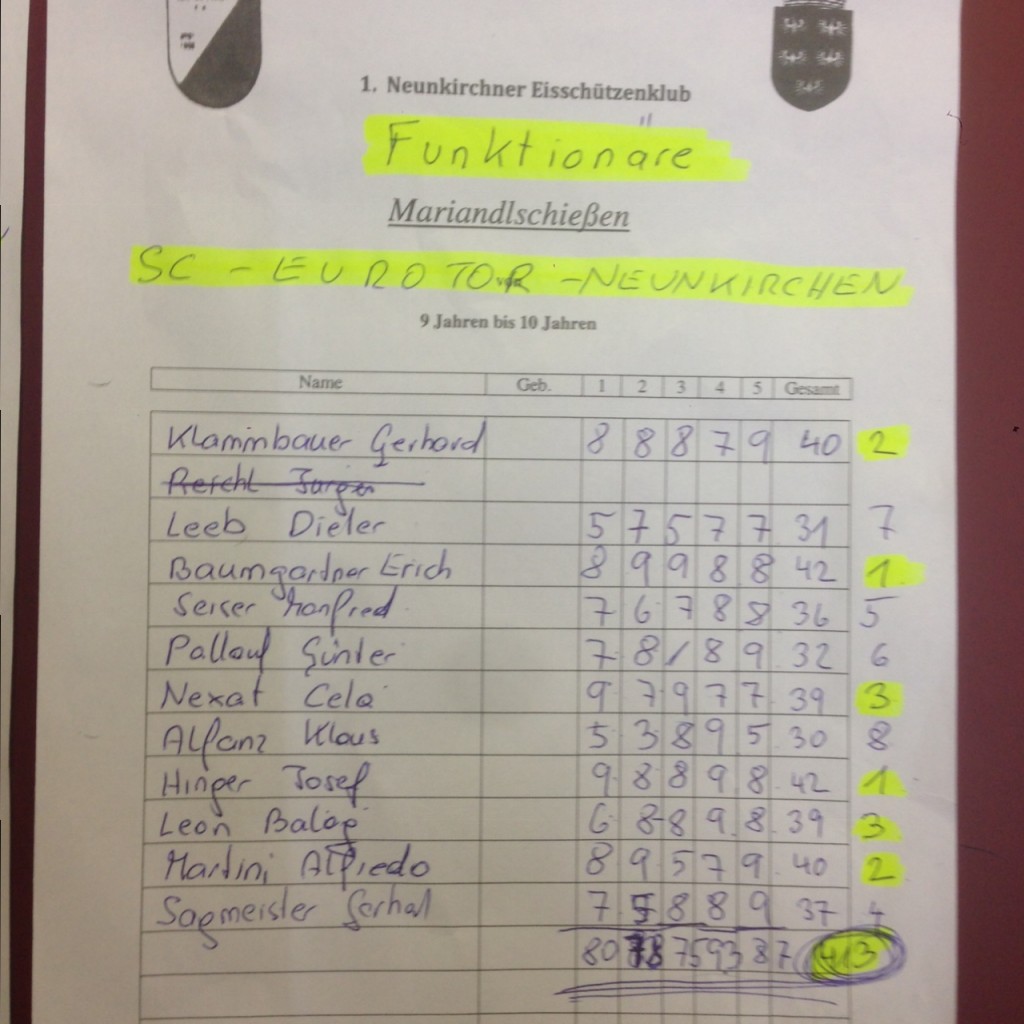 1. Neunkirchner Eisschützenklub
Funktionäre
Mariandlschießen
SC - EUROTOR - NEUNKIRCHEN
9 Jahren bis 10 Jahren
Name Geb. 1 2 3 4 5 Gesamt
Klammbauer Gerhard 8 8 8 7 9 40 2
Leeb Dieter 5 7 5 7 7 31 7
Baumgartner Erich 8 9 9 8 8 42 1
Seiser Manfred 7 6 7 8 8 36 5
Pallauf Günter 7 8 / 8 9 32 6
Nexat Cela 9 7 9 7 7 39 3
Alfanz Klaus 5 3 8 9 5 30 8
Hinger Josef 9 8 8 9 8 42 1
Leon Balaj 6 8 8 9 8 39 3
Martini Alfredo 8 9 5 7 9 40 2
Sagmeister 7 5 8 8 9 37 4
80 78 75 93 87 413